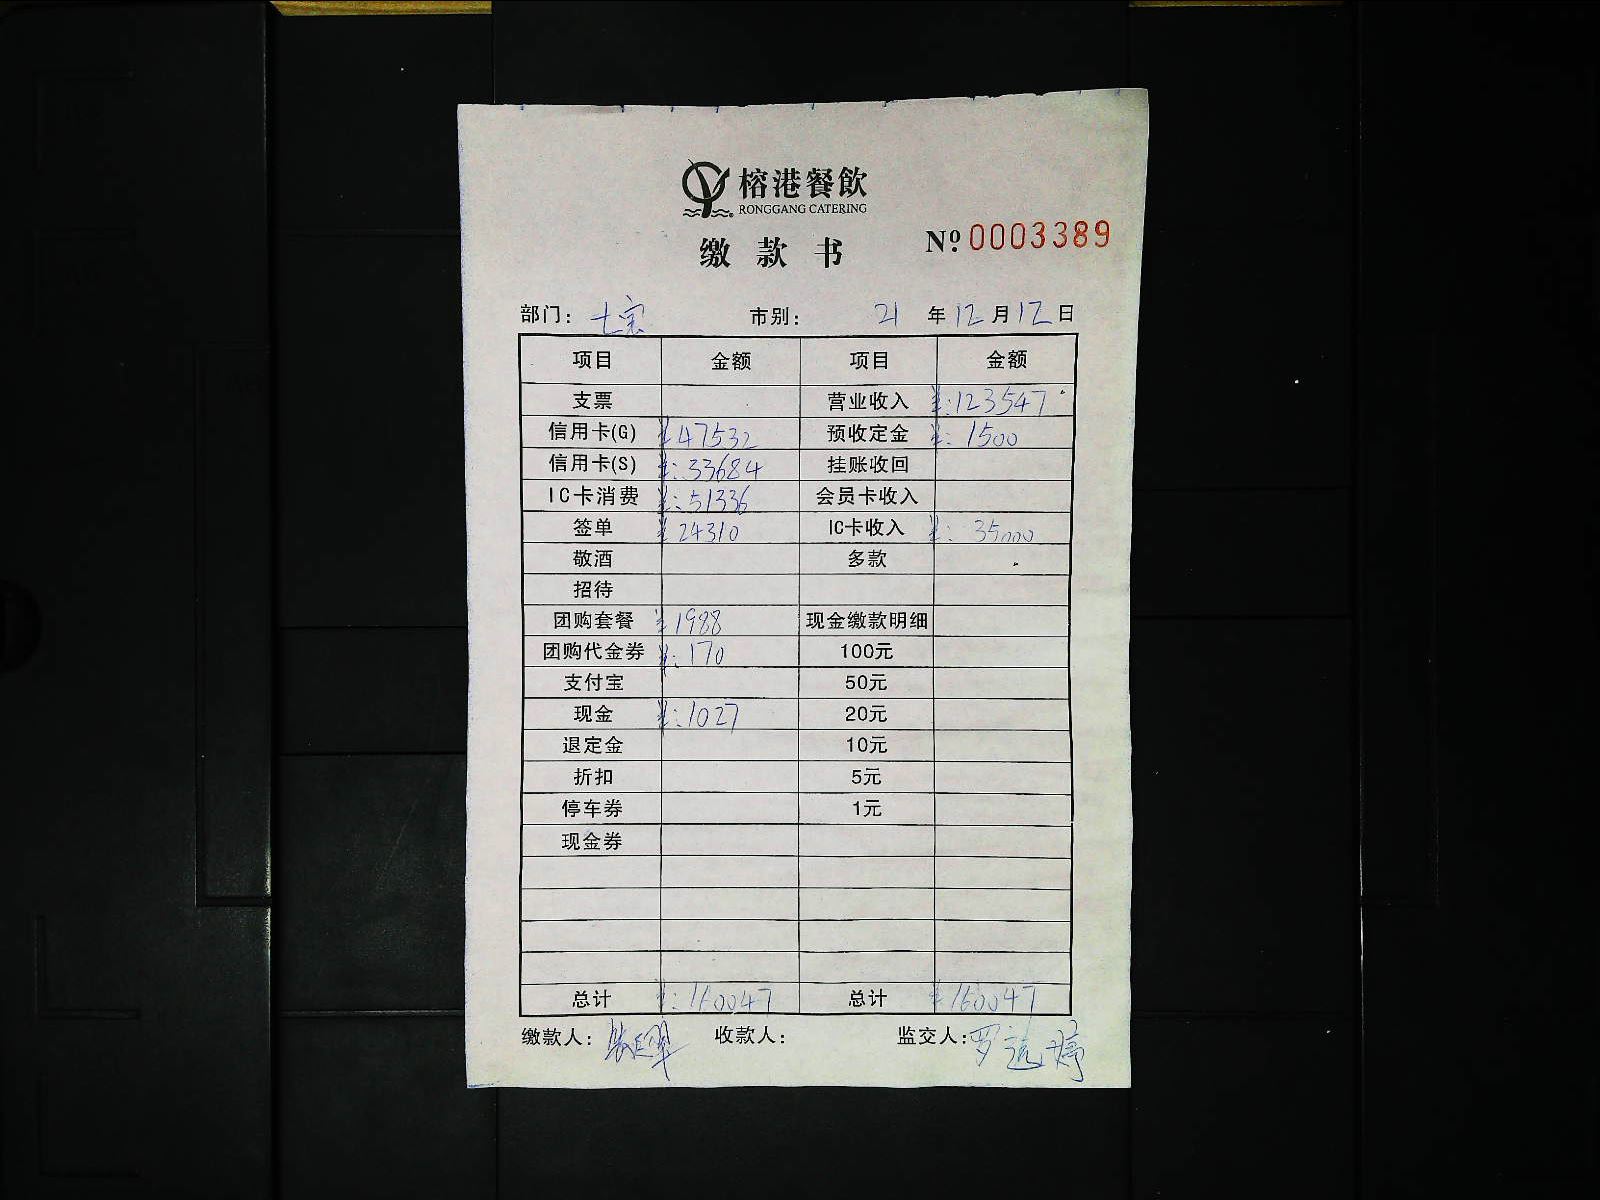 榕港餐飲
RONGGANG CATERING
缴款书
№ 0003389
部门: 七宝 市别: 21 年 12 月 12 日
项目 金额 项目 金额
支票 营业收入 ¥:123547
信用卡(G) ¥47532 预收定金 ¥: 1500
信用卡(S) ¥:33684 挂账收回
IC卡消费 ¥:51336 会员卡收入
签单 ¥24310 IC卡收入 ¥: 35000
敬酒 多款
招待
团购套餐 ¥1988 现金缴款明细
团购代金券 ¥:170 100元
支付宝 50元
现金 ¥:1027 20元
退定金 10元
折扣 5元
停车券 1元
现金券
总计 ¥:160047 总计 ¥160047
缴款人: 收款人: 监交人:罗